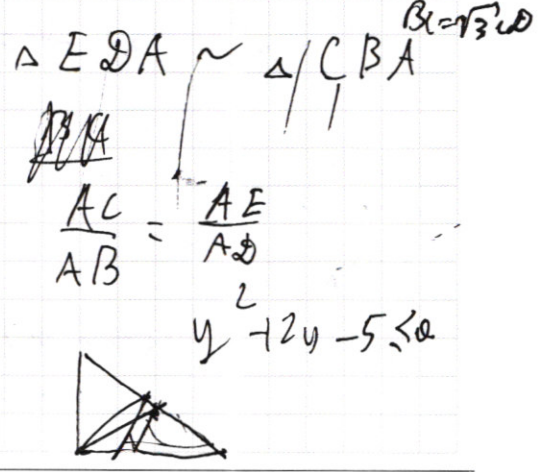 BC = √3 CD
△ EDA ~ △ CBA
AC/AB = AE/AD
y² + 2y - 5 ≤ 0